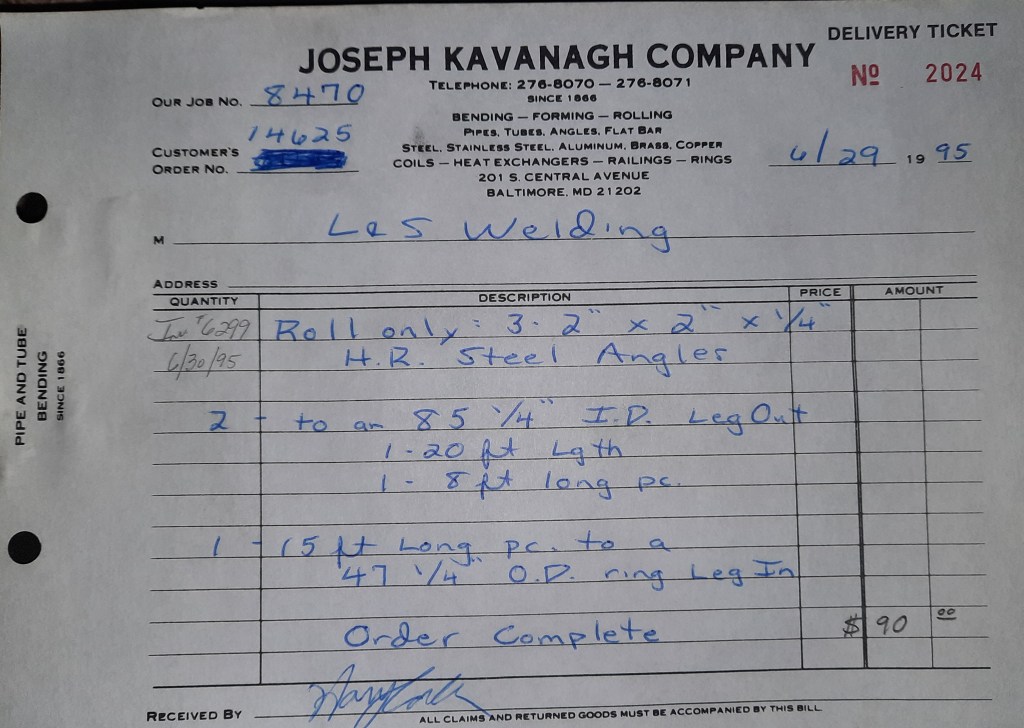 DELIVERY TICKET
JOSEPH KAVANAGH COMPANY
Nº 2024
TELEPHONE: 276-8070 — 276-8071
SINCE 1866
OUR JOB NO. 8470
BENDING — FORMING — ROLLING
PIPES, TUBES, ANGLES, FLAT BAR
STEEL, STAINLESS STEEL, ALUMINUM, BRASS, COPPER
COILS — HEAT EXCHANGERS — RAILINGS — RINGS
201 S. CENTRAL AVENUE
BALTIMORE, MD 21202
14625
CUSTOMER'S
ORDER NO.
6/29 1995
M L&S Welding
ADDRESS
QUANTITY DESCRIPTION PRICE AMOUNT
Inv #6299 Roll only: 3- 2" x 2" x 1/4"
6/30/95 H.R. Steel Angles
2 - to an 85 1/4" I.D. Leg Out
1-20 ft Lgth
1- 8 ft long pc.
1 - 15 ft Long pc. to a
47 1/4" O.D. ring Leg In
Order Complete $ 90 00
RECEIVED BY
ALL CLAIMS AND RETURNED GOODS MUST BE ACCOMPANIED BY THIS BILL
PIPE AND TUBE
BENDING
SINCE 1866